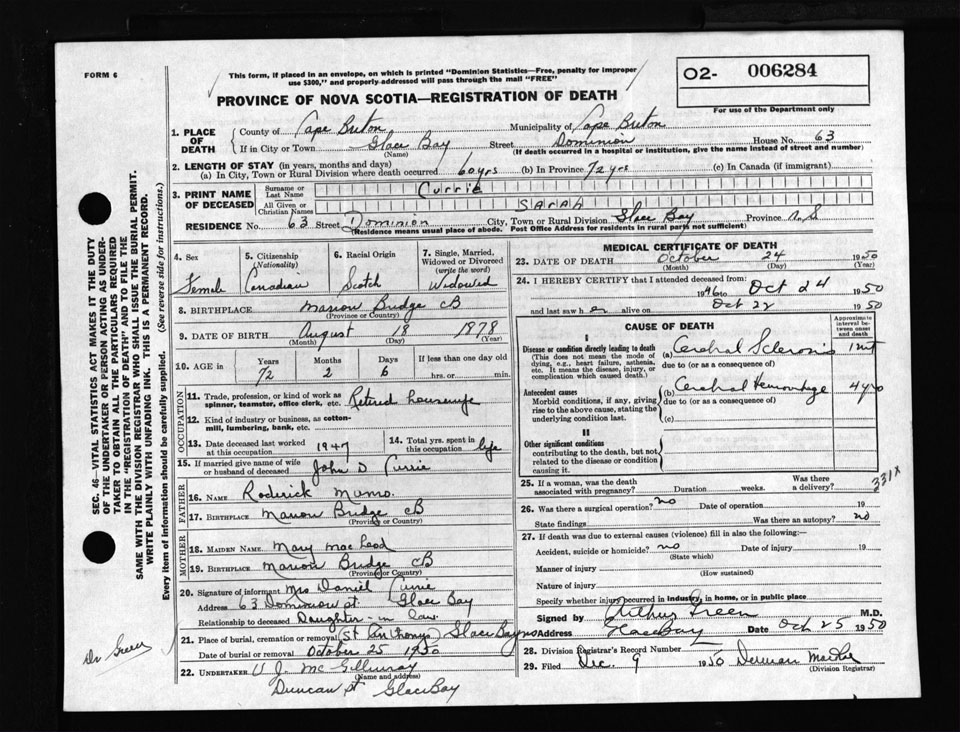 FORM 6
This form, if placed in an envelope, on which is printed "Dominion Statistics—Free, penalty for improper
use $300," and properly addressed will pass through the mail "FREE"
O2- 006284
For use of the Department only
PROVINCE OF NOVA SCOTIA—REGISTRATION OF DEATH
1. PLACE OF DEATH
County of Cape Breton Municipality of Cape Breton
If in City or Town Glace Bay Street Dominion House No. 63
(Name) (If death occurred in a hospital or institution, give the name instead of street and number)
2. LENGTH OF STAY (in years, months and days)
(a) In City, Town or Rural Division where death occurred 60 yrs (b) In Province 72 yrs (c) In Canada (if immigrant)
3. PRINT NAME OF DECEASED
Surname or Last Name Currie
All Given or Christian Names Sarah
RESIDENCE No. 63 Street Dominion City, Town or Rural Division Glace Bay Province N.S
(Residence means usual place of abode. Post Office Address for residents in rural parts not sufficient)
4. Sex
Female
5. Citizenship
(Nationality)
Canadian
6. Racial Origin
Scotch
7. Single, Married,
Widowed or Divorced
(write the word)
Widowed
8. BIRTHPLACE Marion Bridge CB
(Province or Country)
9. DATE OF BIRTH August 18 1878
(Month) (Day) (Year)
10. AGE in
Years Months Days If less than one day old
72 2 6 hrs. or min.
OCCUPATION
11. Trade, profession, or kind of work as
spinner, teamster, office clerk, etc. Retired housewife
12. Kind of industry or business, as cotton-
mill, lumbering, bank, etc.
13. Date deceased last worked
at this occupation 1947
14. Total yrs. spent in
this occupation life
15. If married give name of wife
or husband of deceased John D Currie
FATHER
16. NAME Roderick Munro.
17. BIRTHPLACE Marion Bridge CB
(Province or Country)
MOTHER
18. MAIDEN NAME Mary MacLeod
19. BIRTHPLACE Marion Bridge CB
(Province or Country)
20. Signature of informant Mrs Daniel Currie
Address 63 Dominion st. Glace Bay
Relationship to deceased Daughter-in law.
21. Place of burial, cremation or removal (St Anthonys) Glace Bay NS
Date of burial or removal October 25 1950
22. UNDERTAKER V J. McGillivray
(Name and address)
Duncan st Glace Bay
MEDICAL CERTIFICATE OF DEATH
23. DATE OF DEATH October 24 1950
(Month) (Day) (Year)
24. I HEREBY CERTIFY that I attended deceased from
1946 to Oct 24 1950
and last saw her alive on Oct 22 1950
CAUSE OF DEATH
Approximate
interval be-
tween onset
and death
I
Disease or condition directly leading to death
(This does not mean the mode of
dying, e.g., heart failure, asthenia,
etc. It means the disease, injury, or
complication which caused death.)
(a) Cerebral Sclerosis
due to (or as a consequence of)
Antecedent causes
Morbid conditions, if any, giving
rise to the above cause, stating the
underlying condition last.
(b) Cerebral Hemorrhage
due to (or as a consequence of)
(c)
II
Other significant conditions
contributing to the death, but not
related to the disease or condition
causing it.
331X
25. If a woman, was the death
associated with pregnancy? Duration weeks. Was there
a delivery?
26. Was there a surgical operation? no Date of operation 19
State findings Was there an autopsy? no
27. If death was due to external causes (violence) fill in also the following:—
Accident, suicide or homicide? no Date of injury 19
(State which)
Manner of injury
(How sustained)
Nature of injury
Specify whether injury occurred in industry, in home, or in public place
Signed by Arthur Green M.D.
Address Glace Bay Date Oct 25 1950
28. Division Registrar's Record Number
29. Filed Dec. 9 1950
(Division Registrar)
SEC. 46—VITAL STATISTICS ACT MAKES IT THE DUTY
OF THE UNDERTAKER OR PERSON ACTING AS UNDER-
TAKER TO OBTAIN ALL THE PARTICULARS REQUIRED
IN THE "REGISTRATION OF DEATH" AND TO FILE THE
SAME WITH THE DIVISION REGISTRAR WHO SHALL ISSUE THE BURIAL PERMIT.
WRITE PLAINLY WITH UNFADING INK. THIS IS A PERMANENT RECORD.
Every item of information should be carefully supplied. (See reverse side for instructions.)
Dr Green